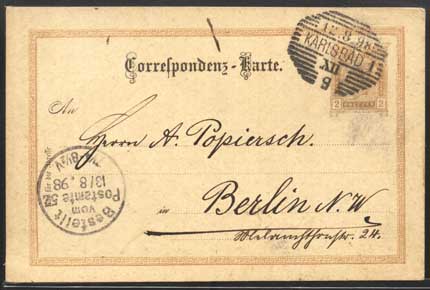 12.8.98
KARLSBAD 1
XII
9
Correspondenz-Karte.
2 2
An
Herrn A. Popiersch.
in Berlin N.W
Melanchthonstr. 24.
Bestellt
vom
Postamte 52
13/8.98
7-8½V